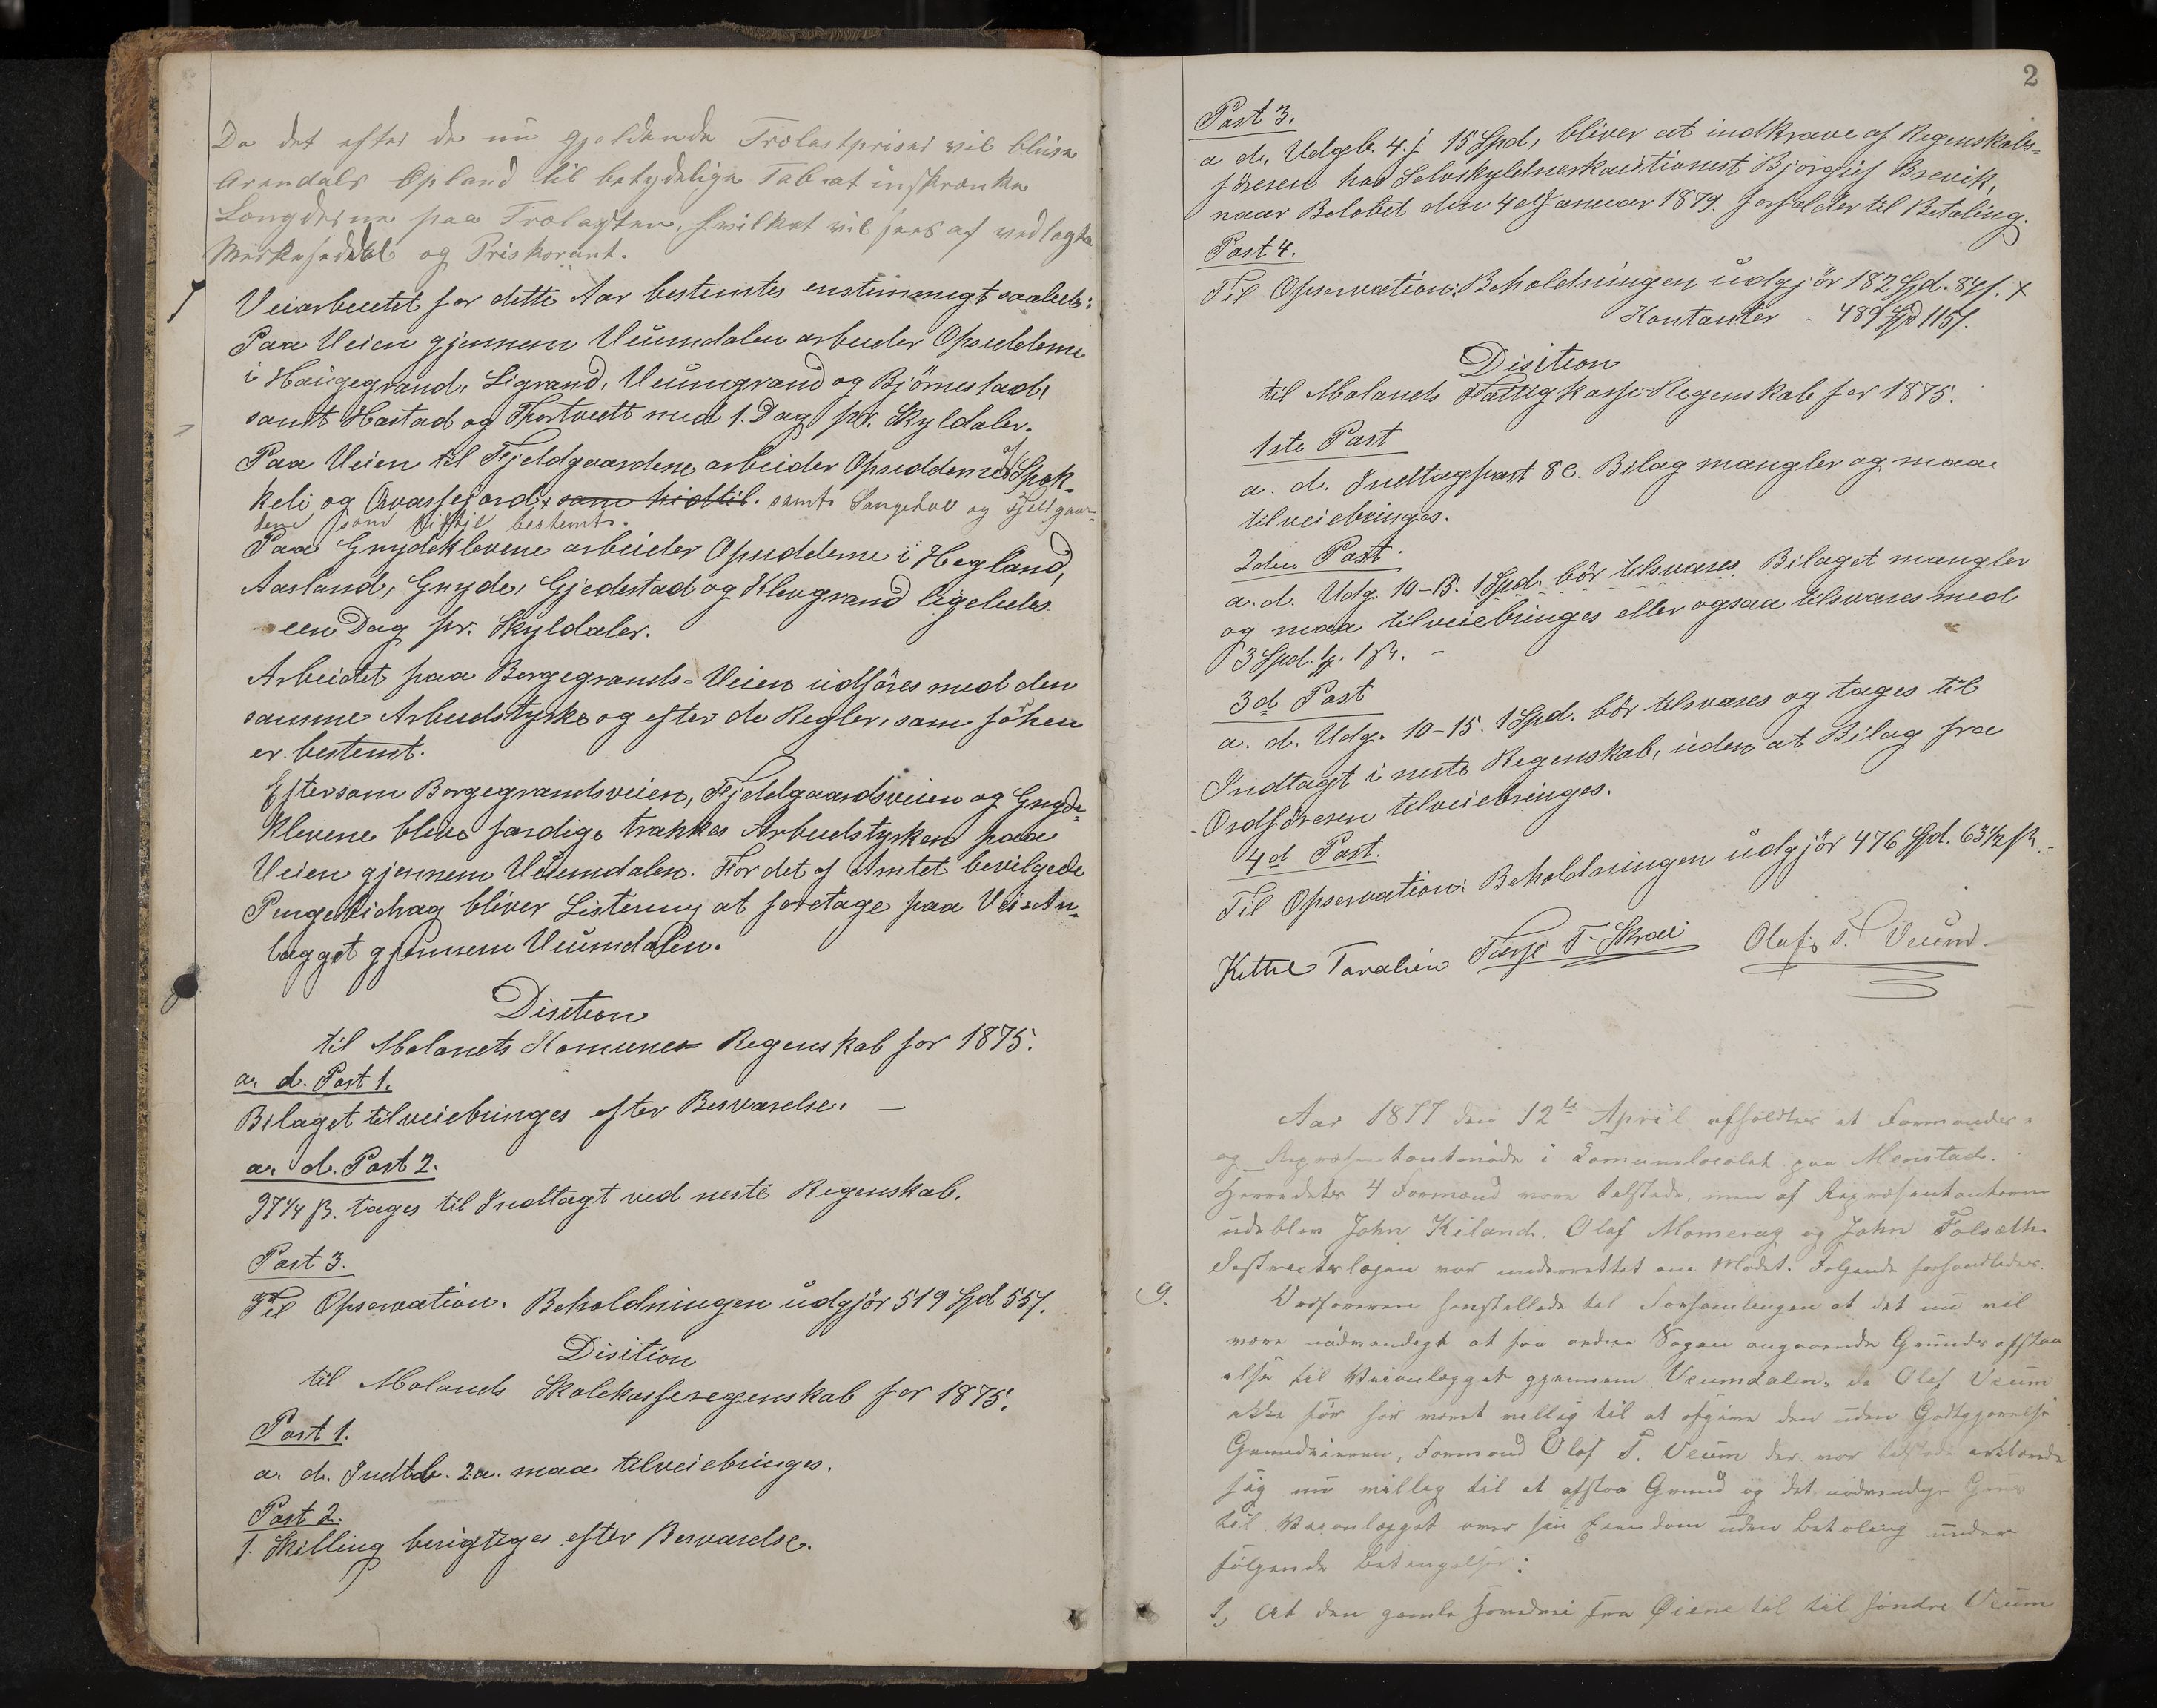 Da det efter de nu gjeldende Trælastpriser vil blive
Arendals Opland til betydelige Tab at inskrænke
Længderne paa Trælasten, hvilket vil sees af vedlagte
Merkeseddel og Priskorant.
7
Veiarbeidet for dette Aar bestemtes enstimmigt saaledes:
Paa Veien gjennem Veumdalen arbeider Opsidderne
i Haugegrand, Ligrand, Veumgrand og Björnestad,
samt Hastad og Thortvett med 1. Dag pr. Skyldaler.
Paa Veien til Fjeldgaardene arbeider Opsidderne i Skok-
keli og Qvassefjord, som hidtil. samt Langedal og Fjeldgaar-
dene som hidtil bestemt.
Paa Gnydeklevene arbeider Opsidderne i Hegland,
Aasland, Gnyde, Gjedestad og Klevgrand ligeledes
een Dag pr. Skyldaler.
Arbeidet paa Borgegrands-Veien udföres med den
samme Arbeidstyrke og efter de Regler, som förhen
er bestemt.
Eftersom Borgegrandsveien, Fjeldgaardsveien og Gnyde-
klevene blive færdige trækkes Arbeidstyrken paa
Veien gjennem Veumdalen. For det af Amtet bevilgede
Pengebidrag bliver Listering at foretage paa Vei-An-
lægget gjennem Veumdalen.
Disition
til Molands Komunes Regenskab for 1875.
a. d. Post 1.
Bilaget tilveiebringes efter Besvarelse. —
a. d. Post 2.
97 1/4 ß. tages til Indtægt ved neste Regenskab.
Post 3.
Til Opservation. Beholdningen udgjör 519 Spd 55 ſ.
Disition
til Molands Skolekasseregenskab for 1875.
Post 1.
a. d. Indtb. 2a. maa tilveiebringes.
Post 2.
1. Skilling berigtiges efter Besvarelse.
2
Post 3.
a d. Udgb. 4. j 15 Spd, bliver at indkræve af Regenskabs-
föreren hos Selvskyldnerkautionist Björgulf Brevik,
naar Belöbet den 4de Januar 1879. forfalder til Betaling.
Post 4.
Til Opservation: Beholdningen udgjör 182 Spd. 84 ſ. x
Kontanter - 489 Spd 115 ſ.
Disition
til Molands Fattigkasse-Regenskab for 1875.
1ste Post
a. d. Indtagpost 8 C. Bilag mangler og maa
tilveiebringes.
2den Post
a. d. Udg. 10-13. 1 Spd. bör tilsvares. Bilaget mangler
og maa tilveiebringes eller ogsaa tilsvares med
3 Spd. 1 ß. -
3d Post
a. d. Udg. 10-15. 1 Spd. bör tilsvares og tages til
Indtægt i neste Regenskab, uden at Bilag fra
Ordföreren tilveiebringes.
4d Post.
Til Opservation: Beholdningen udgjör 476 Spd. 63 1/2 ß.
Kittil Taralien Tarje T. Skrei Olaf T. Veum
Aar 1877 den 12te April afholdtes et Formands-
og Repræsentantmöde i Komunelocalet paa Menstad.
Herredets 4 Formænd vare tilstede, men af Repræsentanterne
udeblev John Kiland, Olaf Momerag og John Folsæth
Distrectslægen var underrettet om Mödet. Følgende forhandledes.
9.
Ordføreren forestillede til Forsamlingen at det nu vil
være nödvendigt at faa ordne Sagen angaaende Grundafstaa
else til Veianlægget gjennem Veumdalen, da Olaf Veum
ikke för har været villig til at afgive den uden Godtgjørelse
Grundeieren, Formand Olaf T. Veum der var tilstede erklærede
sig nu villig til at afstaa Grund og det nödvendige Grus
til Veianlægget over sin Eiendom uden Betaling under
følgende Betingelser:
1, At den gamle Hovedvei fra Øiene til til søndre Veum